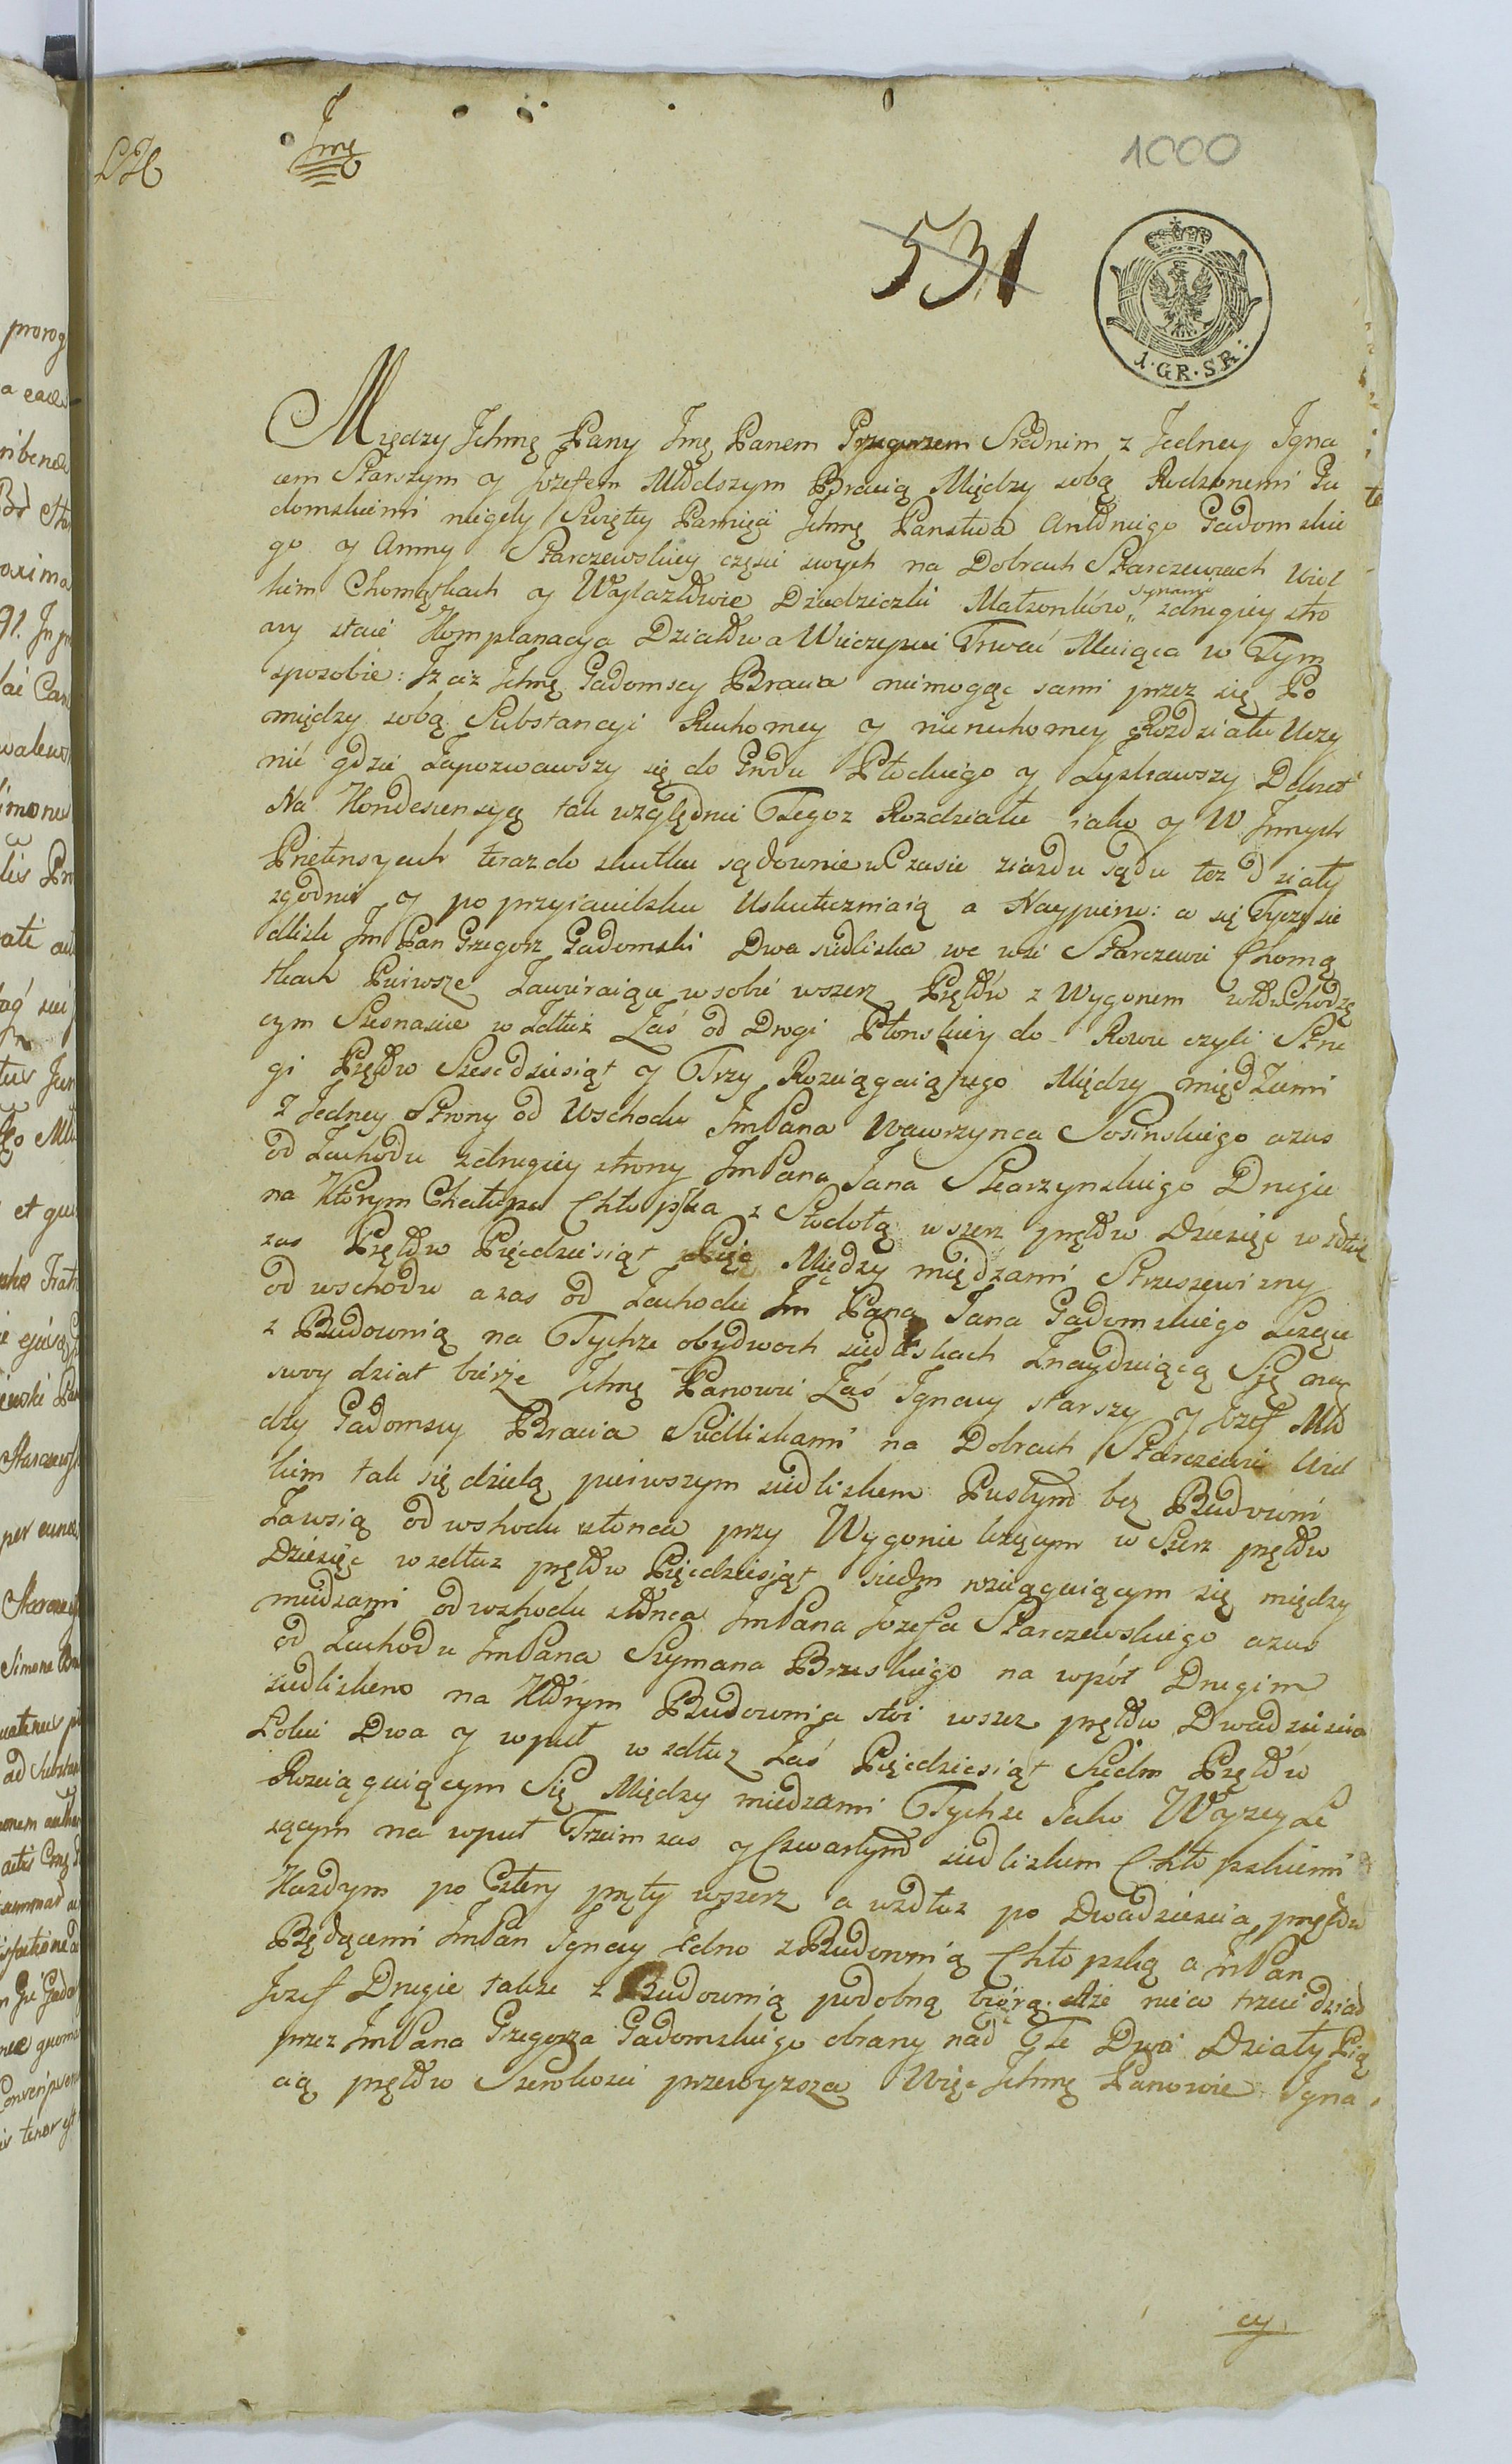 1000
531
1·GR·SR:
Jmę
Między Jchmę Pany Jmę Panem Grzegorzem Srednim z Jedney Igna
cem Starszym y Jozefem Młodszym Bracią Między sobą Rodzonemi Ga
domskiemi niegdy Swięty Pamięci Jchmę Panstwa Antoniego Gadomskie
go y Anny Starczewskiey częsci swych na Dobrach Starczewiach Wiel
kim Chomątkach y Dziedziczki Małzonków Synami z drugiey stro
ny staie Komplanacya Działowa Wieczyscie Trwać Maiąca w Tym
sposobie: Iz ciz Jchmę Gadomscy Bracia niemogąc sami przez się Po
między sobą Substancyi Ruchomey y nieruchomey Rozdziału Uczy
nić gdzie Zapozwawszy się do Grodu Płockiego y Zyskawszy Dekret
Na Kondesensyą tak względnie Tegoz Rozdziału iako y W Jnnych
Pretensyach teraz do skutku sądownie w Czasie ziazdu sądu toz działy
zgodnie y po przyiacielsku Uskuteczniaią a Naypierw: co się Tycze sie
dlisk Jm Pan Grzegorz Gadomski Dwa siedliska we wsi Starczewie Chomą
tkach Pierwsze Zawieraiące w sobie wszerz Prętów z Wygonem wto Wchodzą
cym Szesnascie w Zdłuż Zaś od Drogi Płonskiey do Rowu czyli Stru
gi Prętów Szescdziesiąt y Trzy Rozciągaiącego Między miedzami
z Jedney Strony od Wschodu JmPana Wawrzynca Sosinskiego a zas
od Zachodu z drugiey strony JmPana Jana Skarzynskiego Drugie
na Ktorym Chałupa Chłopska z Stodołą w szerz prętów Dziesięć w zdłuż
zas Prętów Pięcdziesiąt Pięć Między miedzami Strzeszewizny
od wschodu a zas od Zachodu Jm Pana Jana Gadomskiego Lezące
z Budownią na Tychze obydwoch siedliskach Znayduiącą Się na
swoy dział bierze Jchmę Panowie Zaś Ignacy starszy y Jozef Mło
dszy Gadomscy Bracia Siedliskami na Dobrach Starczewie Wiel
kim tak się dzielą pierwszym siedliskiem Pustym bez Budowni
Zawsią od wschodu słonca przy Wygonie lezącym w Szerz prętów
Dziesięć w zdłuz prętów Pięcdziesiąt siedm rozciągaiącym się między
miedzami od wschodu słonca JmPana Jozefa Starczewskiego a zas
od Zachodu JmPana Szymana Brzeskiego na wpół Drugim
siedliskiem na Którym Budownia stoi wszerz prętów Dwadziescia
Łokci Dwa y wpuł w zdłuz Zaś Pięcdziesiąt Siedm Prętów
Rozciągaiącym Się Między miedzami Tychze Jako Wyzey Le
zącym na wpuł Trzeim zas y Czwartym siedliskiem Chłopskiemi
Kazdym po Cztery pręty wszerz a wzdłuz po Dwadziescia prętów
Będącemi JmPan Ignacy Jedno z Budownią Chłopską a JmPan
Jozef Drugie takze z Budownią podobną biorą. Aże nieco trzeci dział
przez JmPana Grzegorza Gadomskiego obrany nad Te Dwa Działy Pię
cią prętów Szerokosci przewyzsza Więc Jchmę Panowie Igna
cy